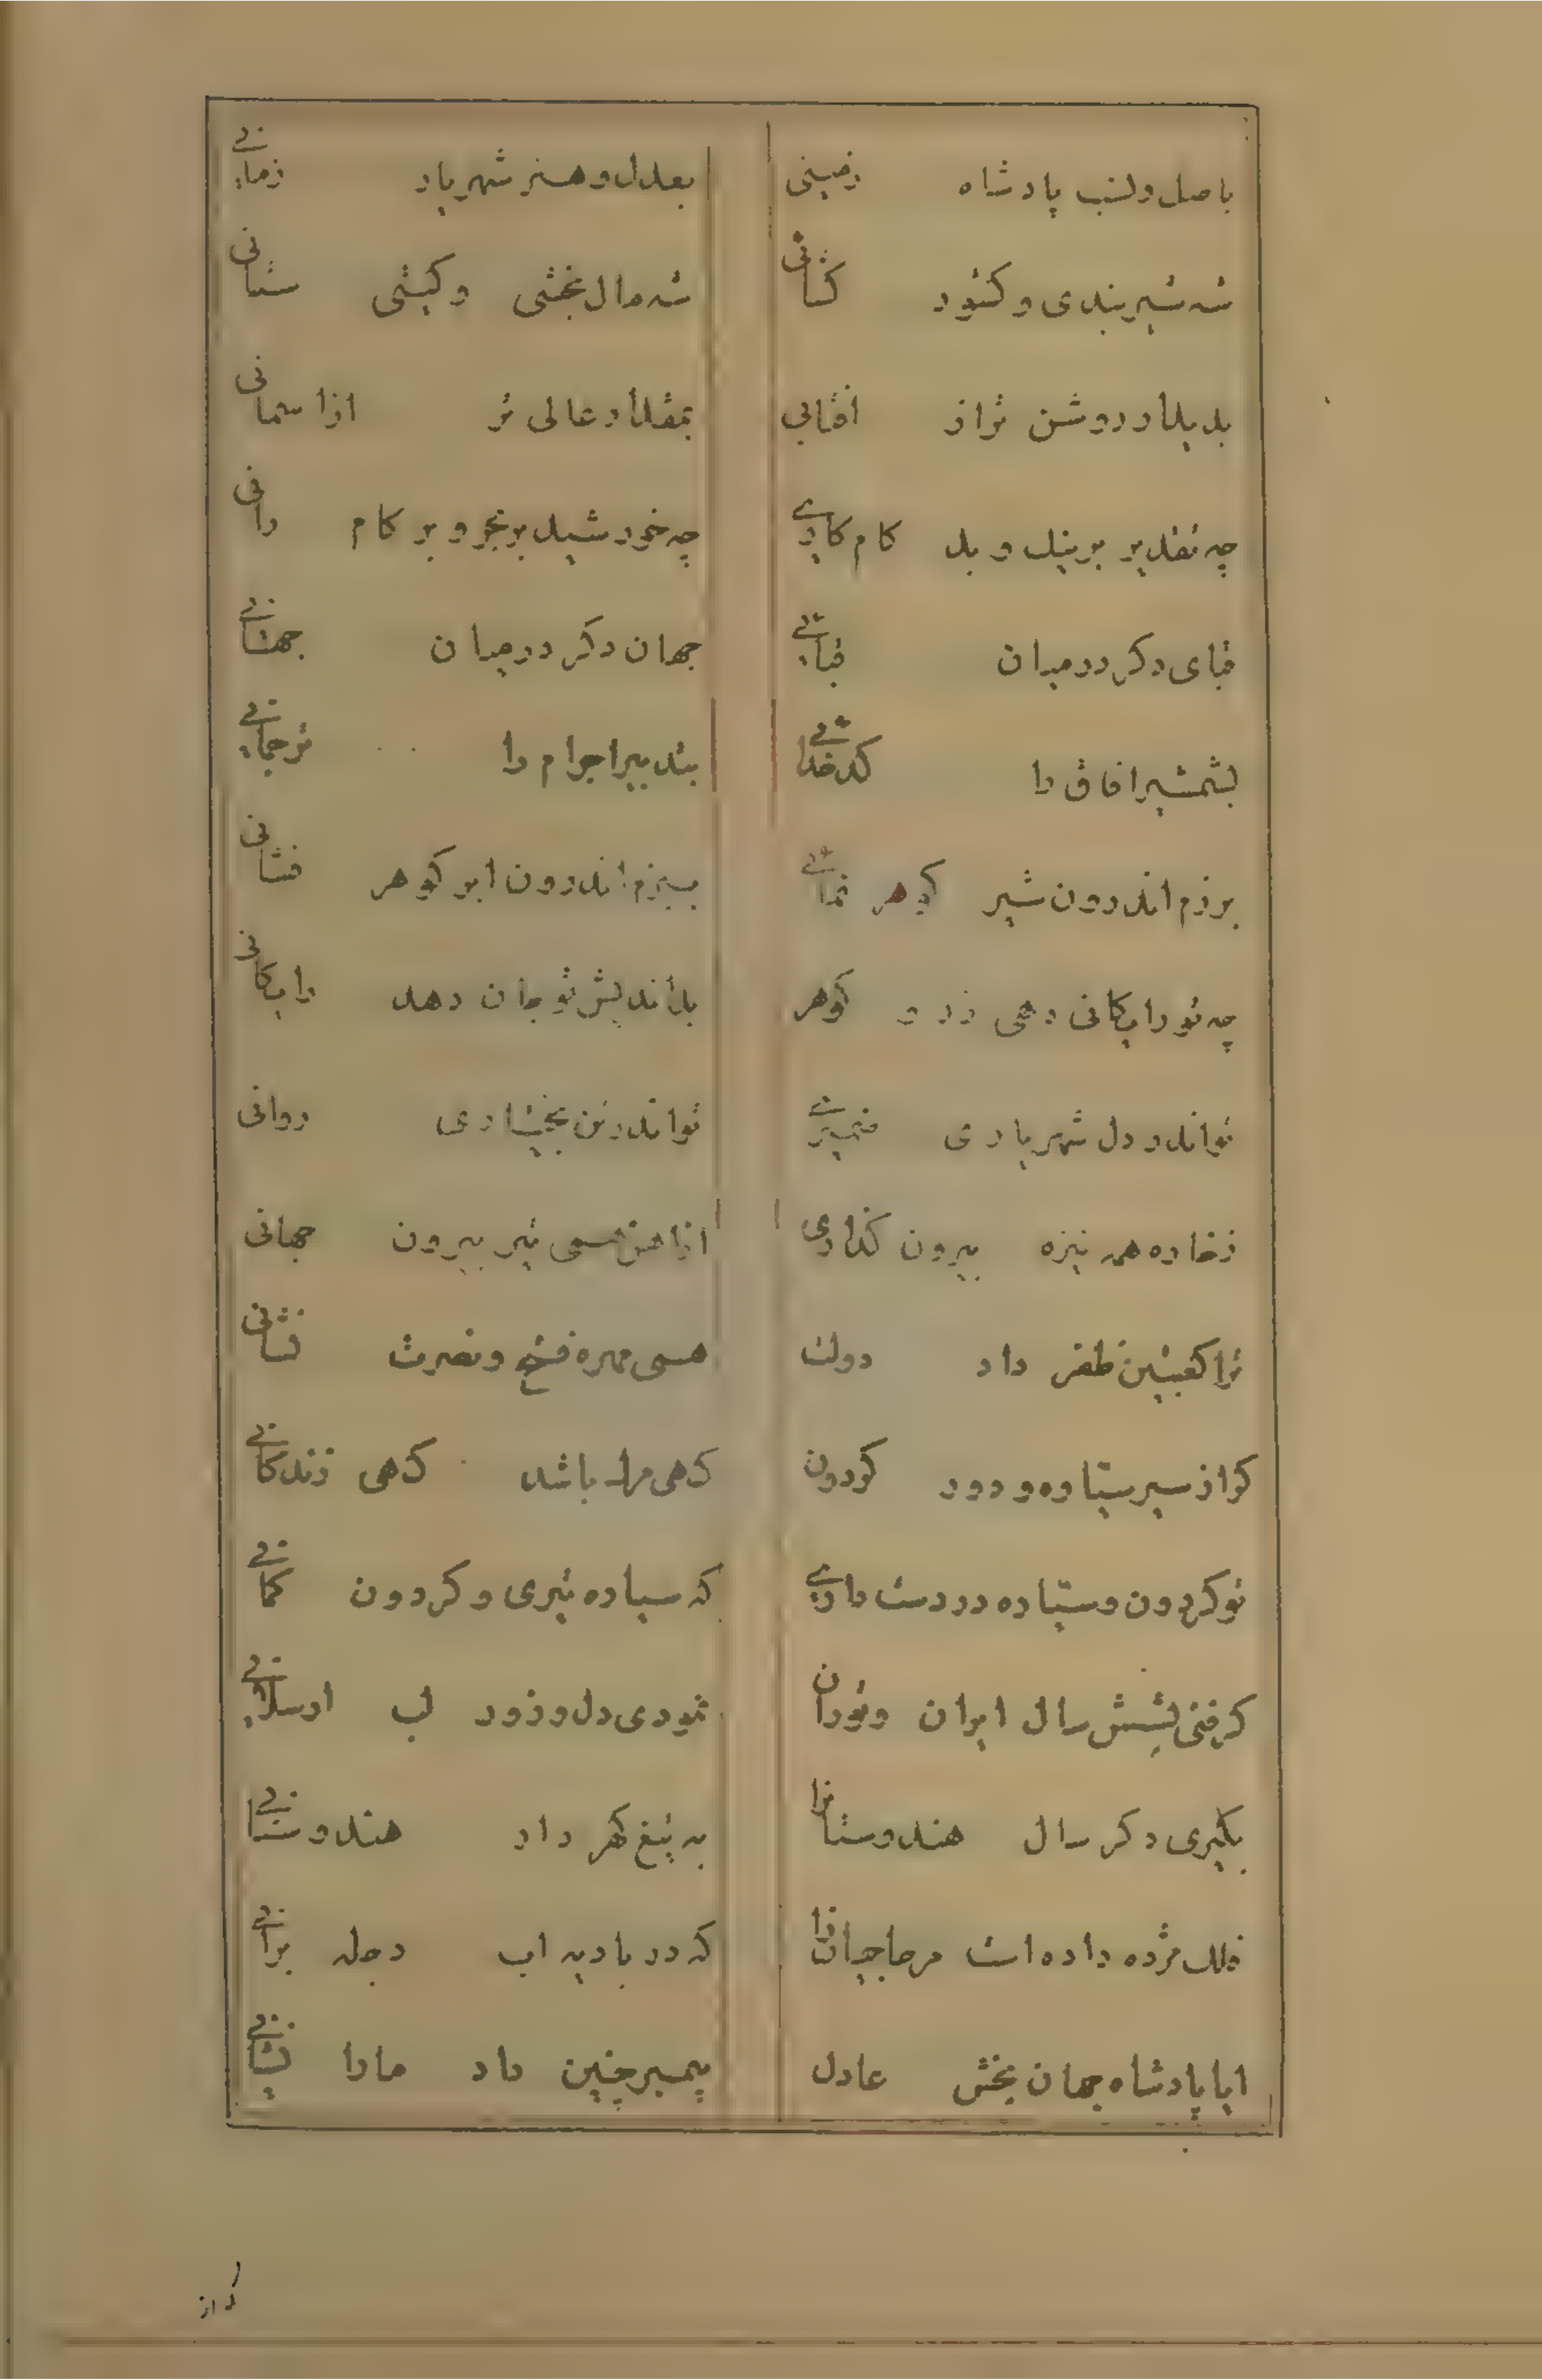 باصل و نسب پادشاه زمینی
بعدل و هنر شهریار زمانی
شه شیربندی و کشور کشائی
شه مال بخشی و کیتی ستانی
بدیدار روشن تر از افتابی
بمقدار عالی تر از اسمانی
چه تقدیر بر نیك و بد کام کاری
چه خورشید بر بحر و بر کام رانی
قبای دکر در میان قبائی
جهان دکر در میان جهانی
بشمشیر افاق را کدخدائی
بتدبیر اجرام را ترجمانی
برزم اندرون شیر کوهر نمائی
ببزم اندرون ابر کوهر فشانی
چه تو رایکانی دهی زر و کوهر
بداندیش تو جان دهد رایکانی
تو اندر دل شهریاری ضمیری
تو اندر تن بختیاری روانی
ز خاره همه نیزه بیرون کذاری
از اهن همی تیر بیرون جهانی
ترا کعبتین ظفر داد دولت
همی مهره فتح و نصرت نشانی
کر از سیر ستاره و دور کردون
کهی مرك باشد کهی زندکانی
تو کردون و ستاره در دست داری
که ستاره تیری و کردون کمانی
کرفتی بشش سال ایران و توران
نمودی دل و زور لب ارسلانی
بکیری دکر سال هندوستانرا
به تیغ کهر دار هندوستانی
فلك مژده داده است مر حاجیانرا
که در بادیه اب دجله برانی
ایا پادشاه جهان بخش عادل
پیمبر چنین داد مارا نشانی
که از